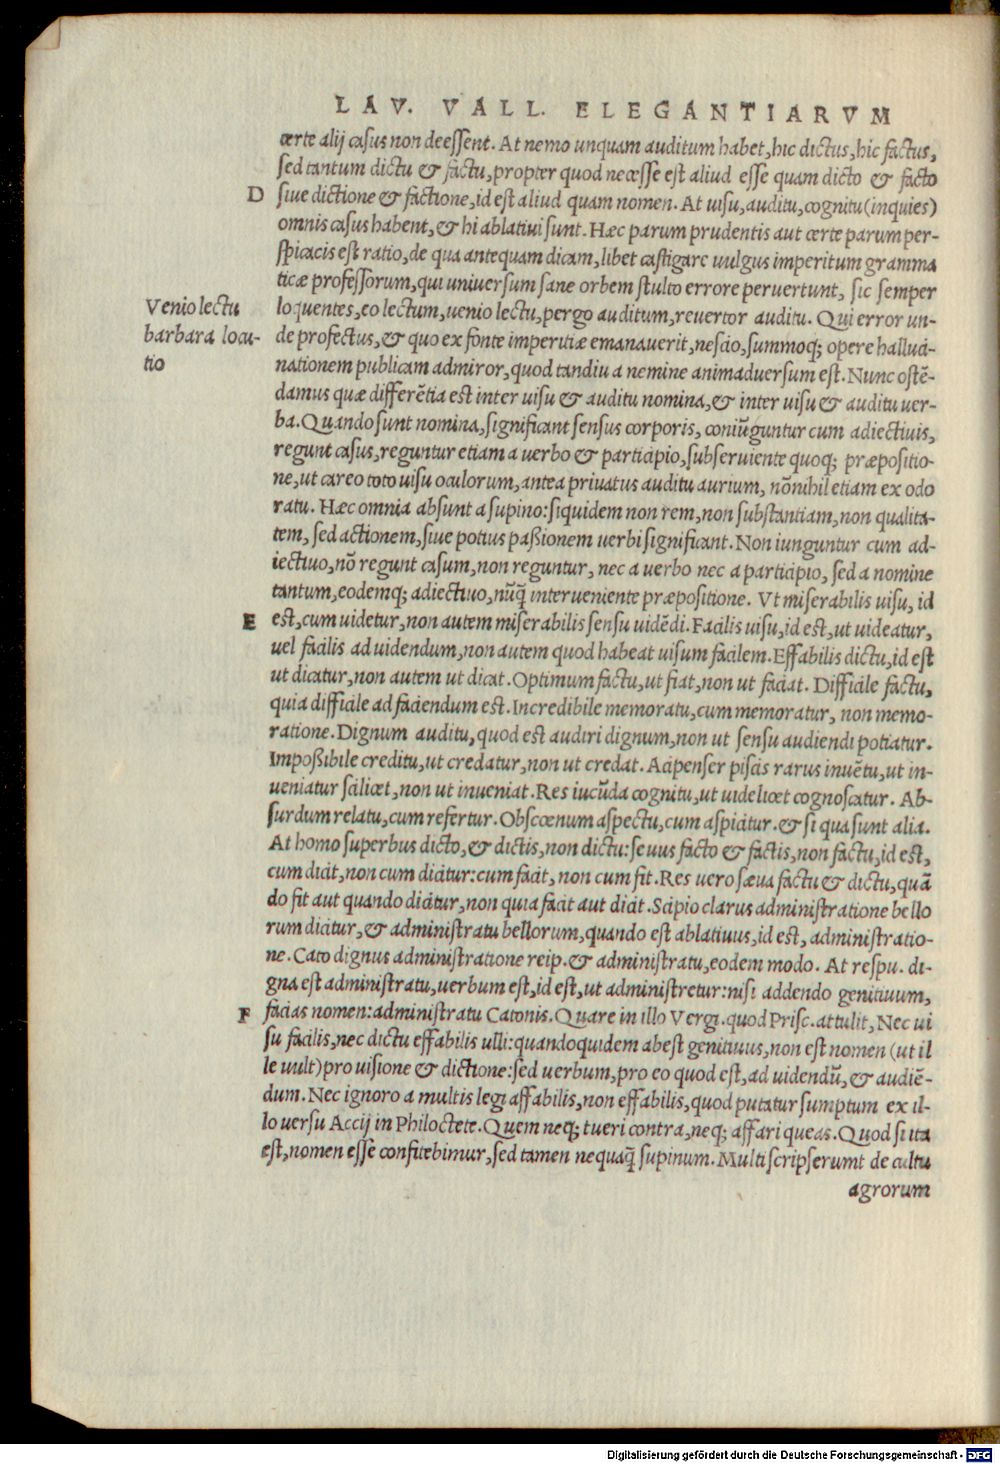 LAV. VALL. ELEGANTIARVM
certe alij casus non deessent. At nemo unquam auditum habet, hic dictus, hic factus,
sed tantum dictu & factu, propter quod necesse est aliud esse quam dicto & facto
D
siue dictione & factione, id est aliud quam nomen. At uisu, auditu, cognitu (inquies)
omnis casus habent, & hi ablatiui sunt. Hæc parum prudentis aut certe parum per-
spicacis est ratio, de qua antequam dicam, libet castigare uulgus imperitum gramma
ticæ professorum, qui uniuersum sane orbem stulto errore peruertunt, sic semper
Venio lectu
barbara locu-
tio
loquentes, eo lectum, uenio lectu, pergo auditum, reuertor auditu. Qui error un-
de profectus, & quo ex fonte imperitiæ emanauerit, nescio, summoq; opere halluci-
nationem publicam admiror, quod tandiu a nemine animaduersum est. Nunc ostē-
damus quæ differētia est inter uisu & auditu nomina, & inter uisu & auditu uer-
ba. Quando sunt nomina, significant sensus corporis, coniūguntur cum adiectiuis,
regunt casus, reguntur etiam a uerbo & participio, subseruiente quoq; præpositio-
ne, ut careo toto uisu oculorum, antea priuatus auditu aurium, nōnihil etiam ex odo
ratu. Hæc omnia absunt a supino: siquidem non rem, non substantiam, non qualita-
tem, sed actionem, siue potius paßionem uerbi significant. Non iunguntur cum ad-
iectiuo, nō regunt casum, non reguntur, nec a uerbo nec a participio, sed a nomine
tantum, eodemq; adiectiuo, nūq̄ interueniente præpositione. Vt miserabilis uisu, id
E
est, cum uidetur, non autem miserabilis sensu uidēdi. Facilis uisu, id est, ut uideatur,
uel facilis ad uidendum, non autem quod habeat uisum facilem. Effabilis dictu, id est
ut dicatur, non autem ut dicat. Optimum factu, ut fiat, non ut faciat. Difficile factu,
quia difficile ad faciendum est. Incredibile memoratu, cum memoratur, non memo-
ratione. Dignum auditu, quod est audiri dignum, non ut sensu audiendi potiatur.
Impoßibile creditu, ut credatur, non ut credat. Acipenser piscis rarus inuētu, ut in-
ueniatur scilicet, non ut inueniat. Res iucūda cognitu, ut uidelicet cognoscatur. Ab-
surdum relatu, cum refertur. Obscœnum aspectu, cum aspicitur. & si qua sunt alia.
At homo superbus dicto, & dictis, non dictu: seuus facto & factis, non factu, id est,
cum dicit, non cum dicitur: cum facit, non cum fit. Res uero sæua factu & dictu, quā
do fit aut quando dicitur, non quia facit aut dicit. Scipio clarus administratione bello
rum dicitur, & administratu bellorum, quando est ablatiuus, id est, administratio-
ne. Cato dignus administratione reip. & administratu, eodem modo. At respu. di-
gna est administratu, uerbum est, id est, ut administretur: nisi addendo genitiuum,
F
facias nomen: administratu Catonis. Quare in illo Vergi. quod Prisc. attulit, Nec ui
su facilis, nec dictu effabilis ulli: quandoquidem abest genitiuus, non est nomen (ut il
le uult) pro uisione & dictione: sed uerbum, pro eo quod est, ad uidendū, & audiē-
dum. Nec ignoro a multis legi affabilis, non effabilis, quod putatur sumptum ex il-
lo uersu Accij in Philoctete. Quem neq; tueri contra, neq; affari queas. Quod si ita
est, nomen esse confitebimur, sed tamen nequaq̄ supinum. Multi scripserumt de cultu
agrorum
Digitalisierung gefördert durch die Deutsche Forschungsgemeinschaft - DFG